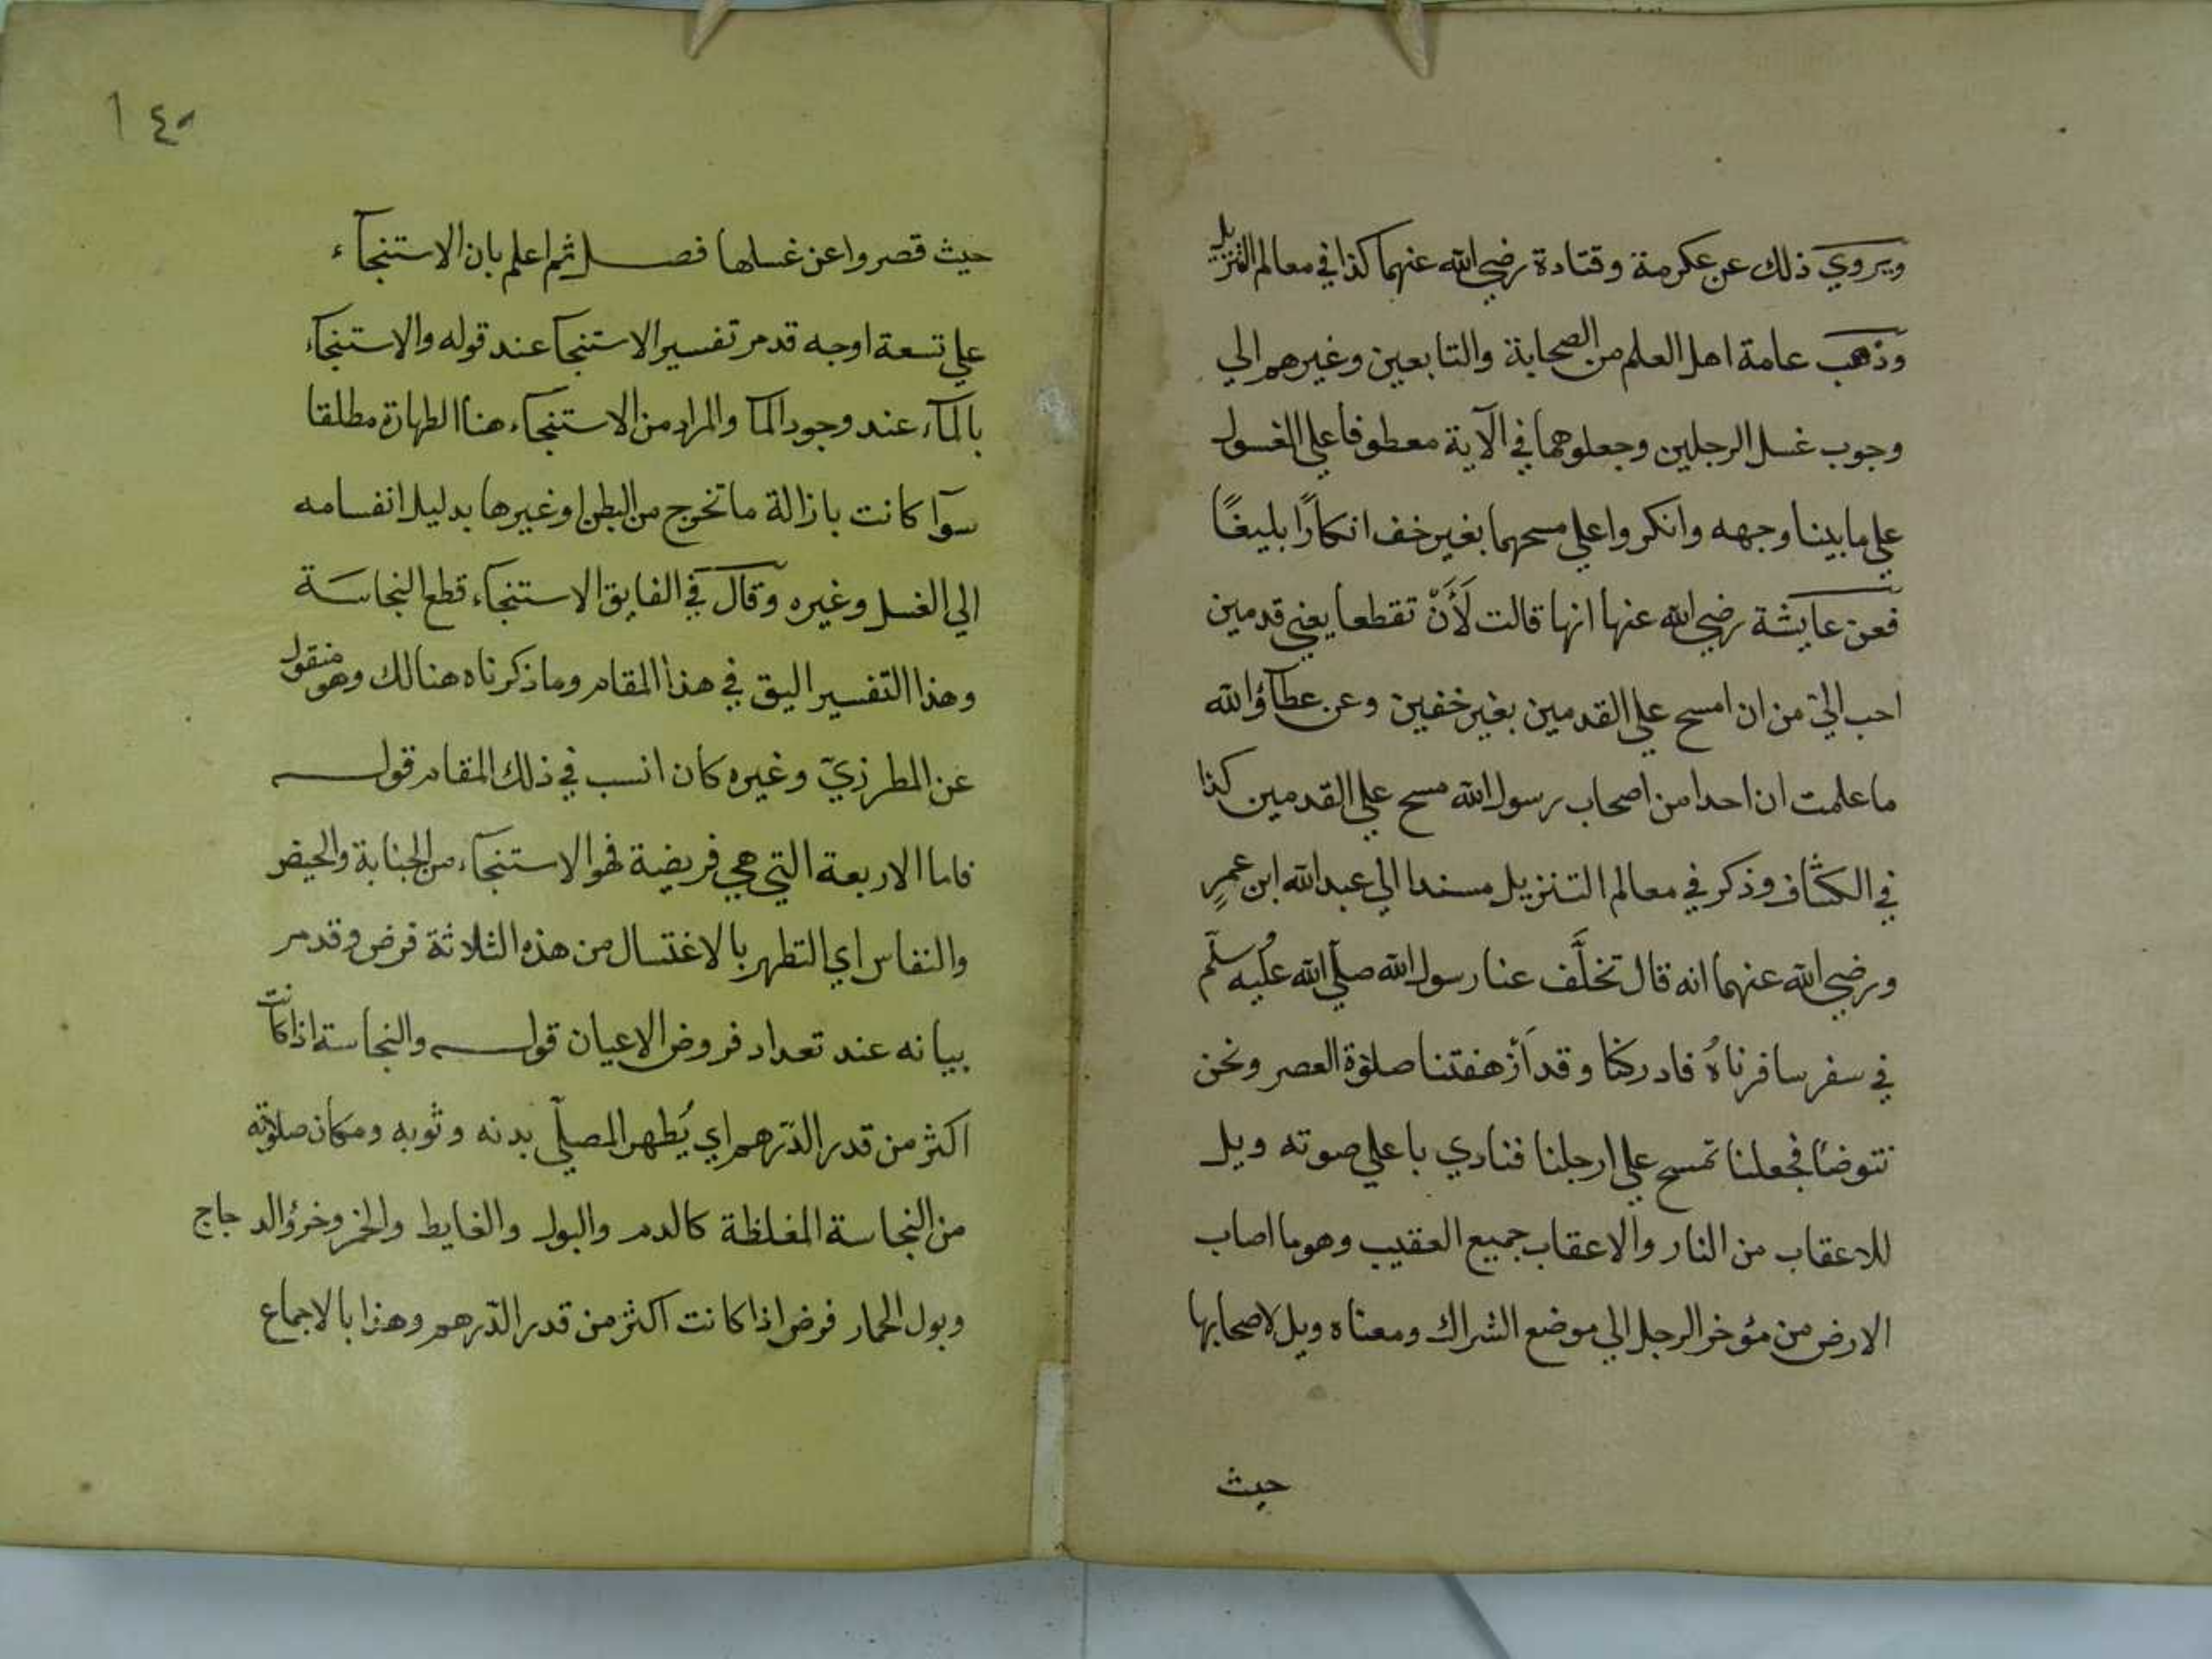 ويروي ذلك عن عكرمة وقتادة رضي الله عنهما كذا في معالم التنزيل
وذهب عامة اهل العلم من الصحابة والتابعين وغيرهم الي
وجوب غسل الرجلين وجعلوهما في الآية معطوفا علي الغسول
علي ما بينا وجهه وانكروا علي مسحهما بغير خف انكارًا بليغًا
فعن عايشة رضي الله عنها انها قالت لَأَنْ تقطعا يعني قدمين
احب اليّ من ان امسح علي القدمين بغير خفين وعن عطآؤ الله
ما علمت ان احدا من اصحاب رسول الله مسح علي القدمين كذا
في الكشاف وذكر في معالم التنزيل مسندا الي عبد الله ابن عمرٍ
ورضي الله عنهما انه قال تخلَّف عنا رسول الله صلّي الله عليه وسلّم
في سفر سافرناهُ فادركنا وقد أزهفتنا صلوة العصر ونحن
نتوضأ فجعلنا نمسح علي ارجلنا فنادي باعلي صوته ويل
للاعقاب من النار والاعقاب جميع العقيب وهو ما اصاب
الارض من مؤخر الرجل الي موضع الشراك ومعناه ويل لاصحابها
حيث
١٤٠
حيث قصروا عن غسلها فصل ثم اعلم بان الاستنجآء
علي تسعة اوجه قد مر تفسير الاستنجا عند قوله والاستنجآء
بالمآء عند وجود المآ والمراد من الاستنجآء هنا الطهارة مطلقا
سوآ كانت بازالة ما تخرج من البطن او غيرها بدليل انفسامه
الي الغسل وغيره وقال في الفايق الاستنجآء قطع النجاسة
وهذا التفسير اليق في هذا المقام وما ذكرناه هنالك وهو منقول
عن المطرزيّ وغيره كان انسب في ذلك المقام قوله
فاما الاربعة التي هي فريضة فهو الاستنجآء من الجنابة والحيض
والنفاس اي التطهر بالاغتسال من هذه الثلاثة فرض وقد مر
بيانه عند تعداد فروض الاعيان قوله والنجاسة اذا كانت
اكثر من قدر الدّرهم اي يُطهر المصلّي بدنه وثوبه ومكان صلاته
من النجاسة المغلظة كالدم والبول والغايط والخمر وخرؤ الدجاج
وبول الحمار فرض اذا كانت اكثر من قدر الدّرهم وهذا بالاجماع